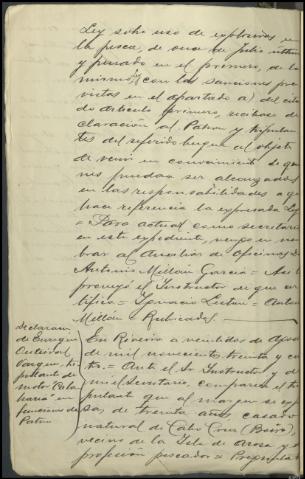 Ley sobre uso de explosivos en
la pesca, de once de Julio último
y penado en el primero, de la
misma y con las sanciones pre
vistas en el apartado a) del cita
do artículo primero, recibase de
claración al Patron y tripulan
tes del referido buque al objeto
de venir en conocimiento de quie
nes puedan ser alcanzados
en las responsabilidades a que
hace referencia la expresada Ley
= Para actuar como secretario
en este expediente, vengo en nom
brar al Auxiliar de Oficinas Dn
Antonio Millan Garcia = Asi lo
proveyó el Instructor de que cer
tifico = Ignacio Lestau = Antonio
Millan Rubricados.
Declaracion
de Enrique
Vazquez, tri
pulante del
motor
en
funciones de
Patron
En Riveira a veintidos de Agosto
de mil novecientos treinta y cua
tro = Ante el Sr Instructor y de
mi el Secretario, comparece el tri
pulante que al margen se expre
sa, de treinta años casado
natural de Cabo Cruz (Boiro),
vecino de la Isla de Arosa y de
profesión pescador = Preguntado